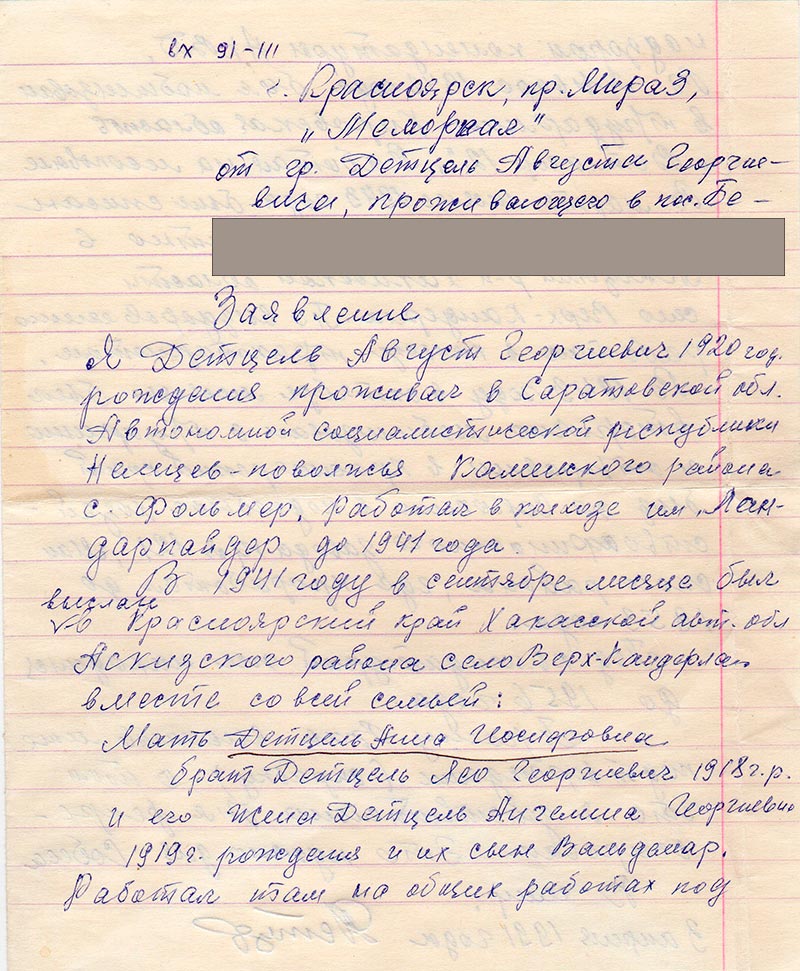 вх 91-III
г. Красноярск, пр. Мира 3,
„Мемориал"
от гр. Детцель Августа Георгие-
вича, проживающего в пос. Бе-
Заявление
Я Детцель Август Георгиевич 1920 год.
рождения проживал в Саратовской обл.
Автономной социалистической республики
Немцев-поволжья Каменского района
с. Фольмер. Работал в колхозе им „Лан-
дарпайдер до 1941 года
В 1941 году в сентябре месяце был
выслан
в Красноярский край Хакасской авт. обл
Аскизского района село Верх-Кандерла
вместе со всей семьёй:
Мать Детцель Анна Иосифовна
брат Детцель Лео Георгиевич 1918 г.р.
и его жена Детцель Ангелина Георгиевна
1919 г. рождения и их сын Вальдемар.
Работал там на общих работах под